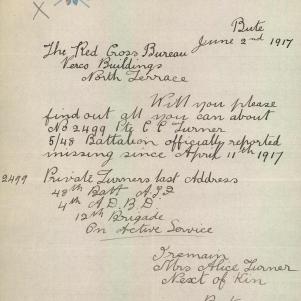 Bute
June 2nd 1917
The Red Cross Bureau
Verco Buildings
North Terrace
Will you please
find out all you can about
No 2499 Pte C C Turner
5/48 Battalion officially reported
missing since April 11th 1917
2499 Private Turners last Address
48th Batt A.I.F
4th A.D.B.D.
12th Brigade
On Active Service
I remain
Mrs Alice Turner
Next of Kin